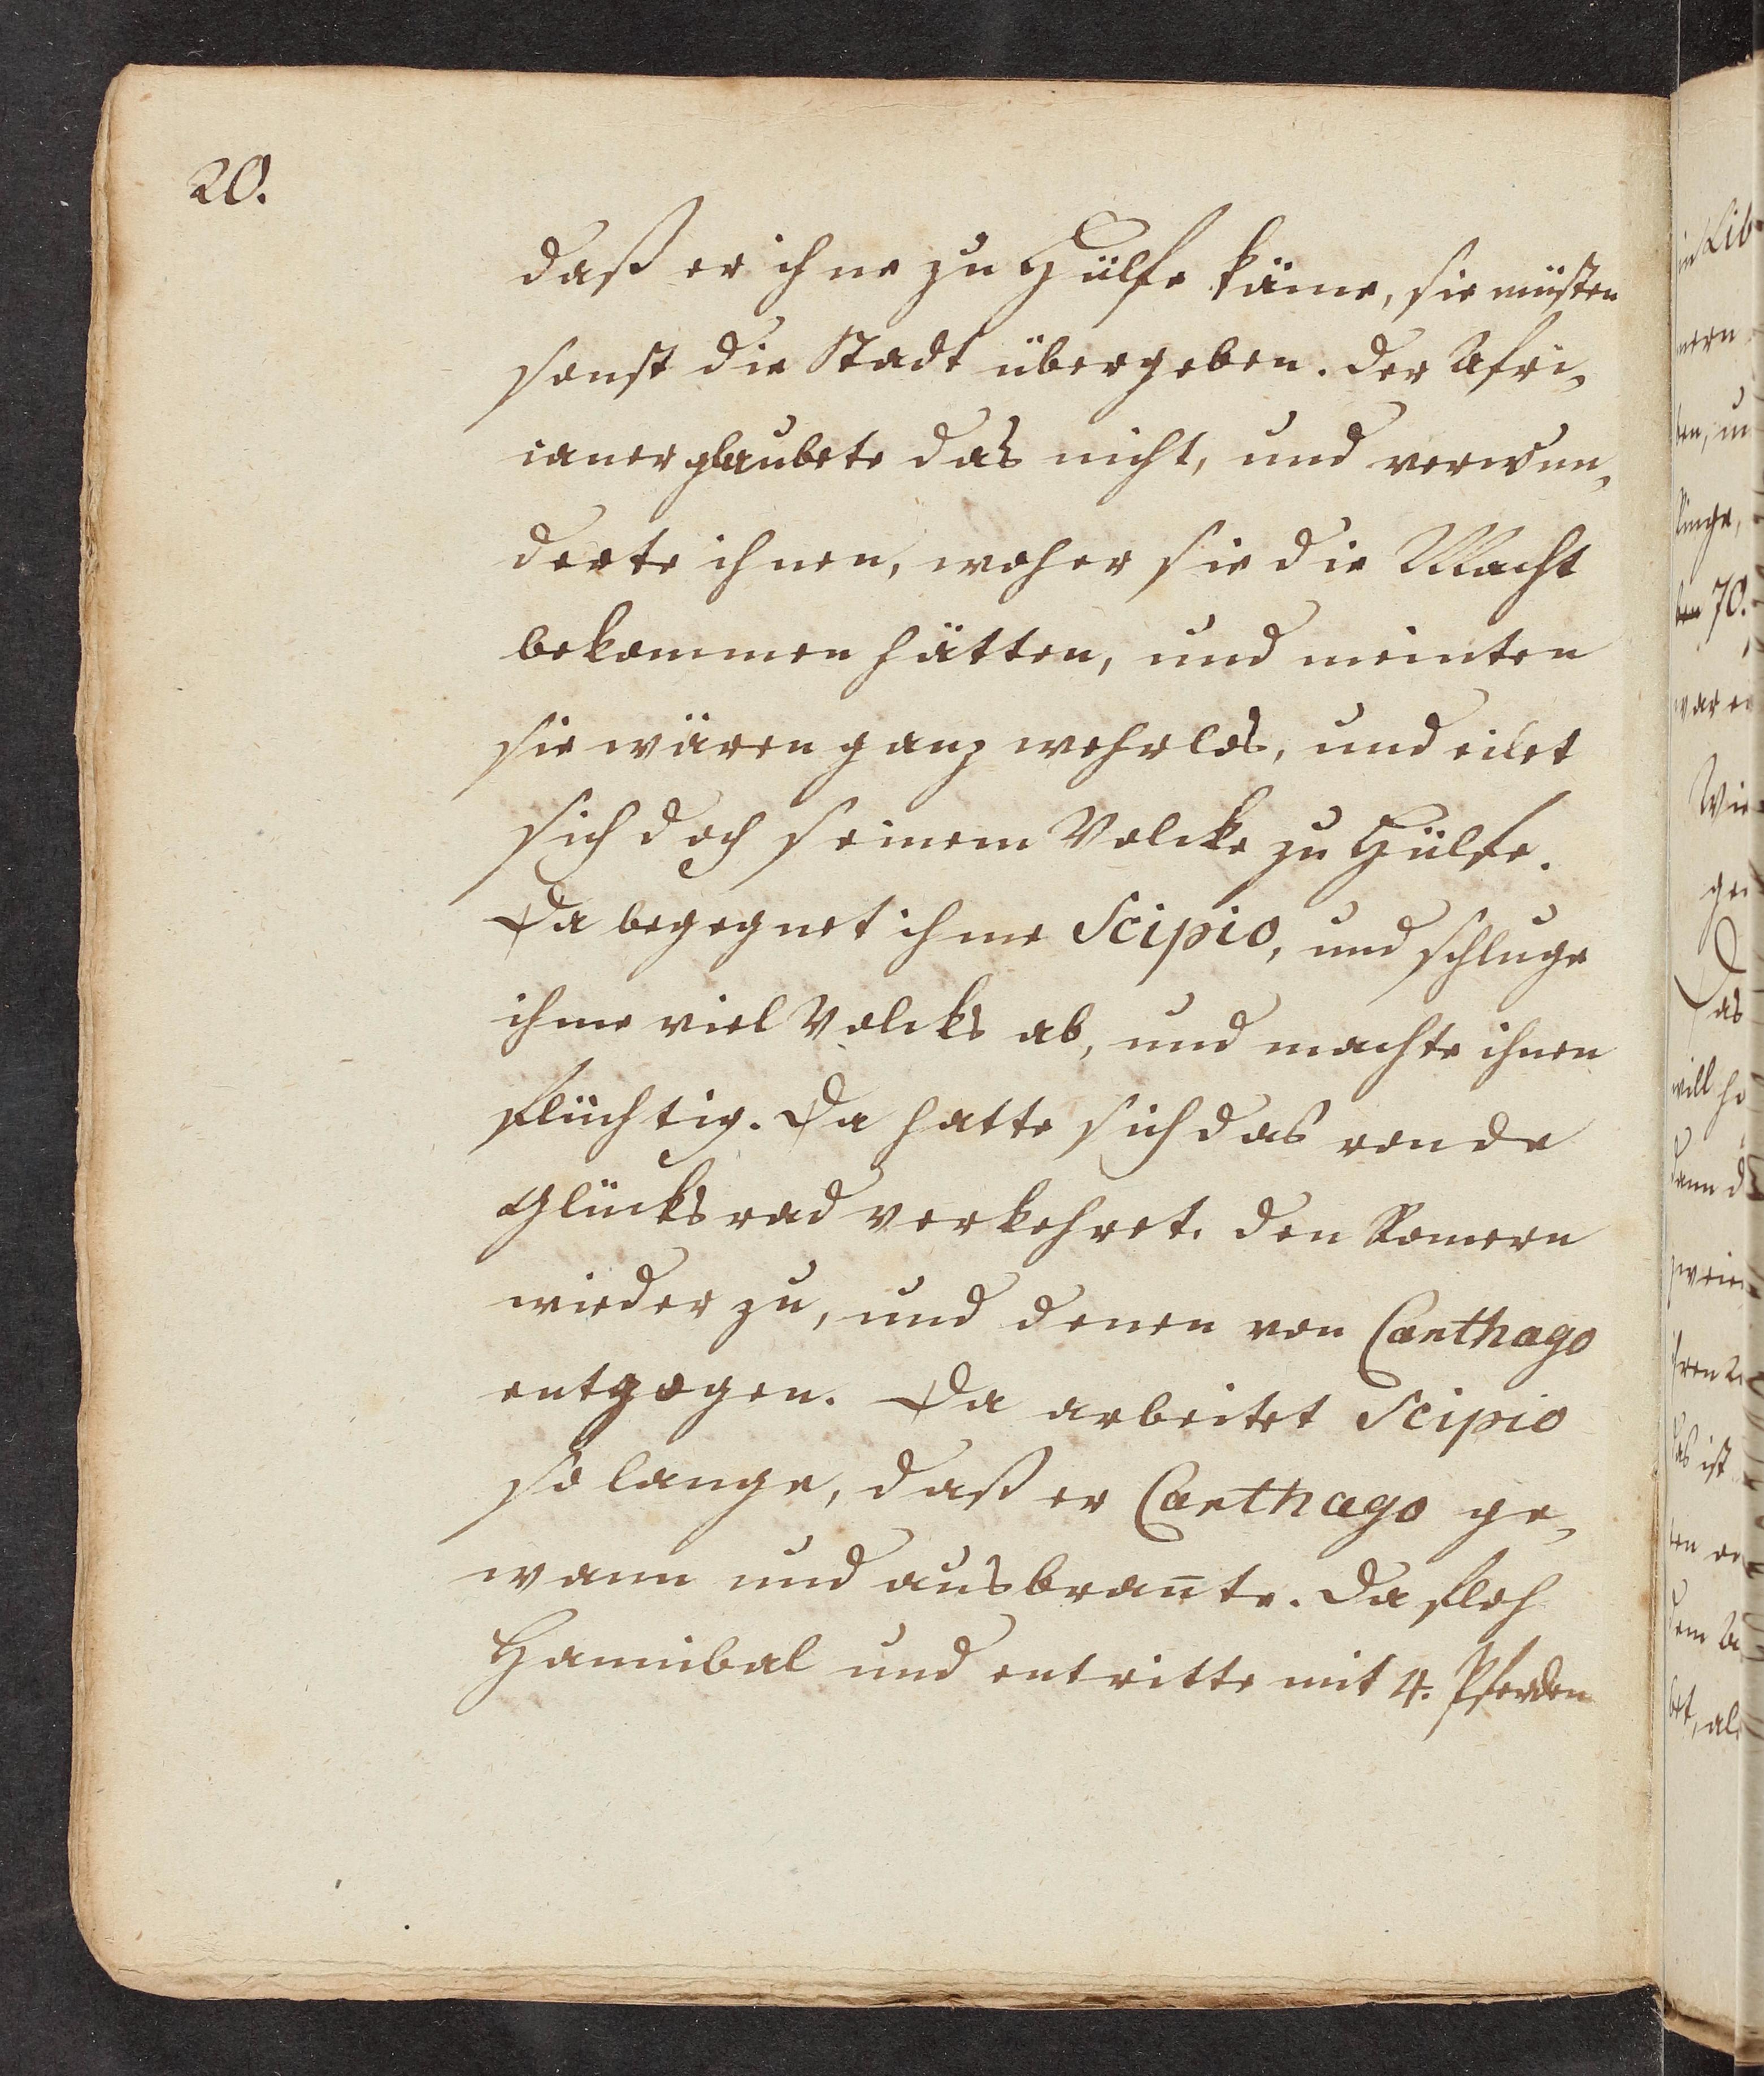 20.
daß er ihne zu Hülfe käme, sie müsten
sonst die Stadt übergeben. der Afri,
caner glaubete das nicht, und verwun,
derte ihnen, woher sie die Macht
bekommen hätten, und meinten
sie wären ganz wehrlos, und eilet
sich doch seinem Volcke zu Hülfe.
Da begegnet ihme Scipio, und schluge
ihme viel Volcks ab, und machte ihnen
flüchtig. Da hatte sich das ronde
Glücksrad verkehret. den Romern
wieder zu, und denen von Carthago
entzogen. Da arbeitet Scipio
so lange, daß er Carthago ge,
wann und ausbran̄te. Da floh
Hannibal und entritte mit 4. Pferden